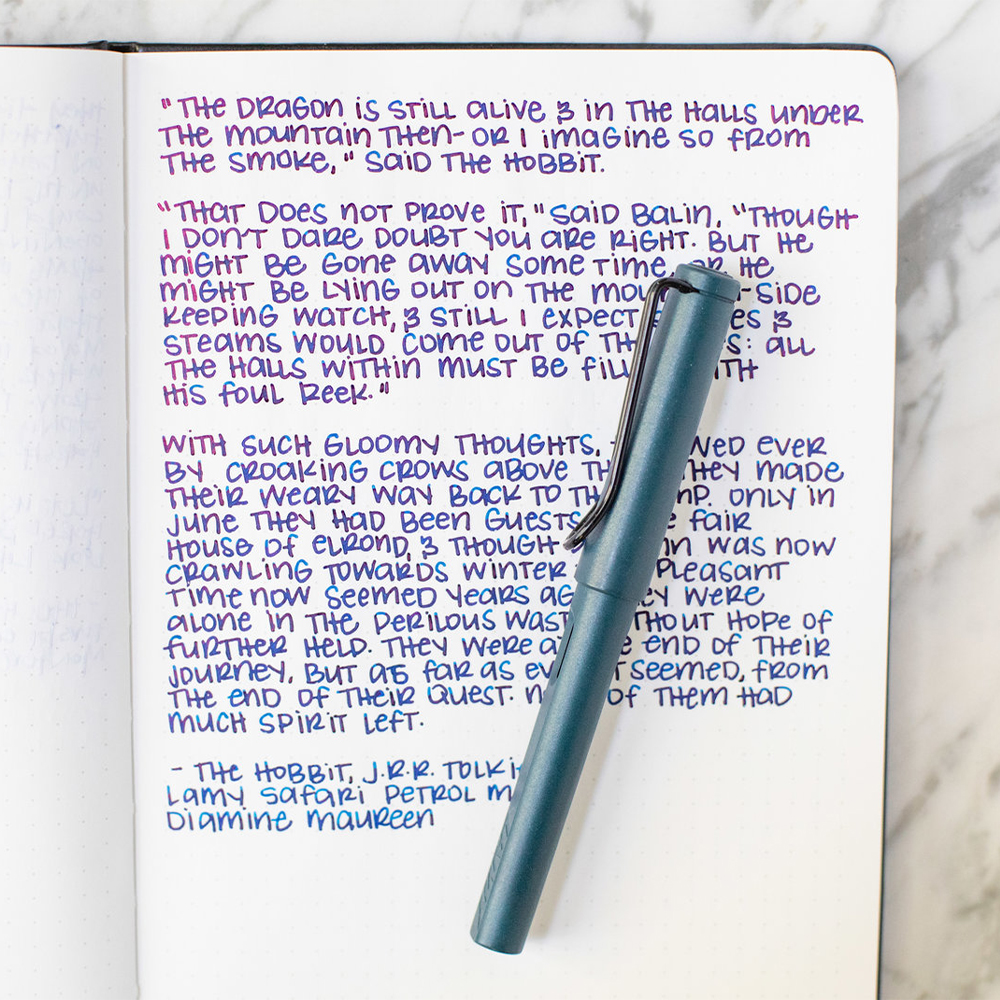 "THE DRAGON iS STiLL ALiVE & iN THE HALLS UNDER
THE MOUNTAiN THEN- OR I iMAGiNE SO FROM
THE SMOKE," SAiD THE HOBBiT.
"THAT DOES NOT PROVE iT," SAiD BALiN, "THOUGH
I DON'T DARE DOUBT YOU ARE RiGHT. BUT HE
MiGHT BE GONE AWAY SOME TiME, OR HE
MiGHT BE LYiNG OUT ON THE -SiDE
KEEPiNG WATCH, & STiLL I EXPECT &
STEAMS WOULD COME OUT OF : ALL
THE HALLS WiTHiN MUST BE
HiS FOUL REEK."
WiTH SUCH GLOOMY THOUGHTS, EVER
BY CROAKiNG CROWS ABOVE THEY MADE
THEiR WEARY WAY BACK TO ONLY iN
JUNE THEY HAD BEEN GUESTS FAiR
HOUSE OF ELROND, & THOUGH WAS NOW
CRAWLiNG TOWARDS WiNTER PLEASANT
TiME NOW SEEMED YEARS WERE
ALONE iN THE PERiLOUS HOPE OF
FURTHER HELP. THEY WERE END OF THEiR
JOURNEY, BUT AS FAR AS SEEMED, FROM
THE END OF THEiR QUEST. OF THEM HAD
MUCH SPiRiT LEFT.
- THE HOBBiT, J.R.R.
LAMY SAFARi PETROL
DiAMiNE MAUREEN